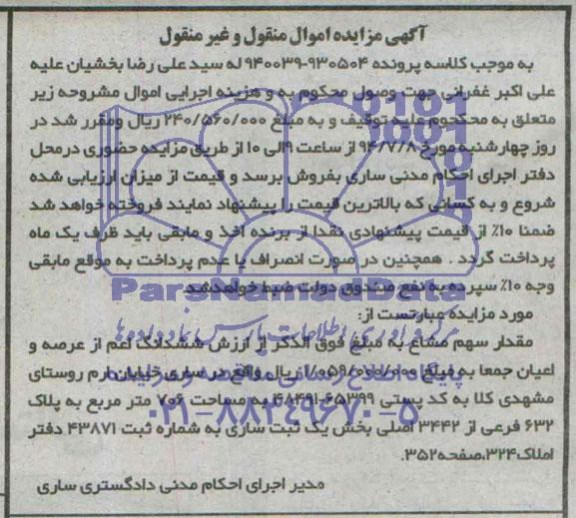 آگهی مزایده اموال منقول و غیر منقول
به موجب کلاسه پرونده ۹۳۰۵۰۴-۹۴۰۰۳۹ له سید علی رضا بخشیان علیه
علی اکبر غفرانی جهت وصول محکوم به و هزینه اجرایی اموال مشروحه زیر
متعلق به محکحوم علیه توقیف و به مبلغ ۲۴۰/۵۶۰/۰۰۰ ریال ومقرر شد در
روز چهارشنبه مورخ ۹۴/۷/۸ از ساعت ۹الی ۱۰ از طریق مزایده حضوری درمحل
دفتر اجرای احکام مدنی ساری بفروش برسد و قیمت از میزان ارزیابی شده
شروع و به کسانی که بالاترین قیمت را پیشنهاد نمایند فروخته خواهد شد
ضمنا ۱۰٪ از قیمت پیشنهادی نقدا از برنده اخذ و مابقی باید ظرف یک ماه
پرداخت گردد . همچنین در صورت انصراف یا عدم پرداخت به موقع مابقی
وجه ۱۰٪ سپرده به نفع صندوق دولت ضبط خواهدشد
ParsNamadData
مورد مزایده عبارتست از:
مرکز فرآوری اطلاعات پارس نماد داده ها
مقدار سهم مشاع به مبلغ فوق الذکر از ارزش ششدانگ اعم از عرصه و
اعیان جمعا به مبلغ ۱/۰۵۹/۰۰۰/۰۰۰ ریال واقع در ساری خیابان ارم روستای
پایگاه اطلاع رسانی مناقصه و مزایده
مشهدی کلا به کد پستی ۶۵۳۹۹-۴۸۴۹۱ به مساحت ۷۰۶ متر مربع به پلاک
۰۲۱-۸۸۳۴۹۶۷۰-۵
۶۳۲ فرعی از ۳۴۴۲ اصلی بخش یک ثبت ساری به شماره ثبت ۴۳۸۷۱ دفتر
املاک۳۲۴،صفحه۳۵۲.
مدیر اجرای احکام مدنی دادگستری ساری